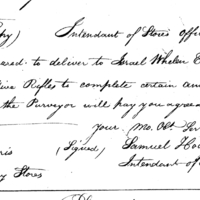 py) Intendant of Stores offi
ared to deliver to Israel Whelen E
five Rifles to complete certain am
the Purveyor will pay you agreea
your Mo. Obt. Ser
ris (Signed) Samuel Ho
Intendant of
y Stores